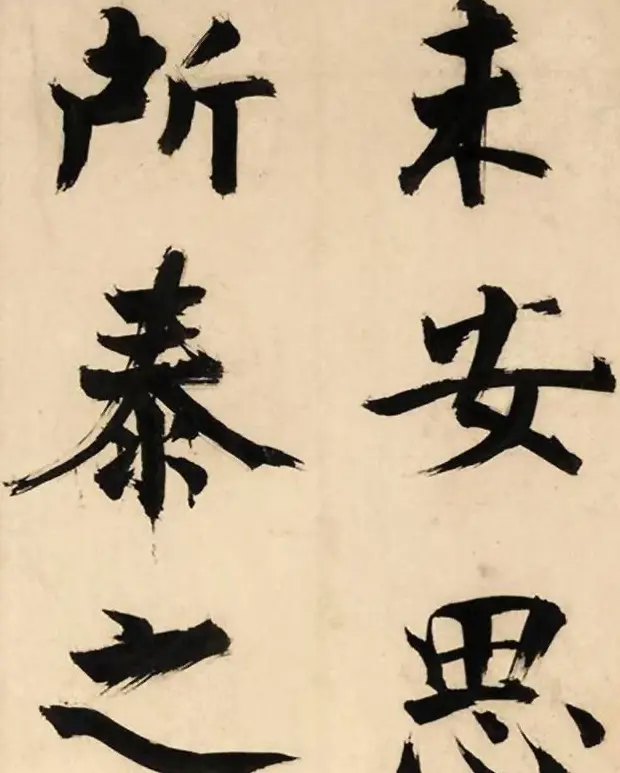 未安思
所泰之